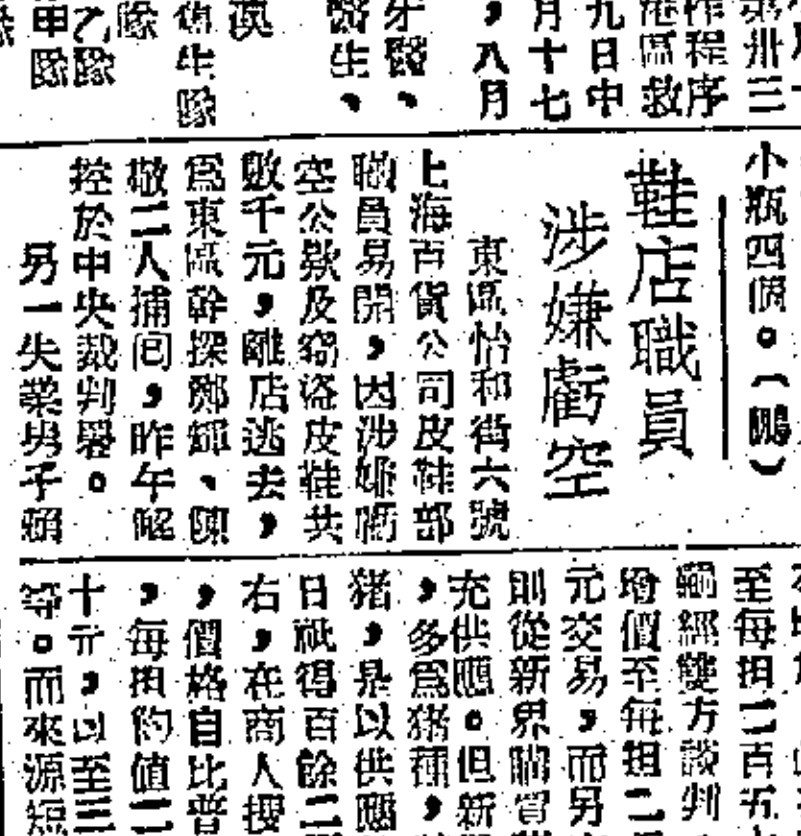 第卅三
程序
港區救
九日中
月十七
，八月
牙醫、
醫生、
隊
乙隊
甲隊
小瓶四個。（鵬）
鞋店職員
涉嫌虧空
東區怡和街六號
上海百貨公司皮鞋部
職員易開，因涉嫌虧
空公款及竊盜皮鞋共
數千元，離店逃去，
爲東區幹探鄭輝、陳
敬二人捕囘，昨午解
控於中央裁判署。
另一失業男子賴
至每担二百五
經雙方談判
增價至每担二
元交易，而另
則從新界購買
充供應。但新
，多爲豬種，
豬，是以供應
日祇得百餘二
右，在商人搜
，價格自比普
，每担約值二
十元，以至三
等。而來源短